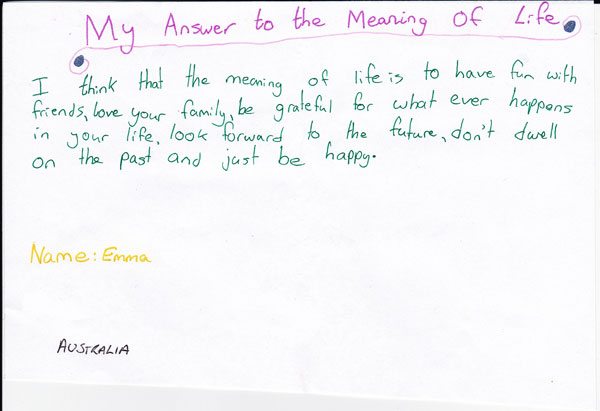 My Answer to the Meaning Of Life
I think that the meaning of life is to have fun with
friends, love your family, be grateful for what ever happens
in your life, look forward to the future, don't dwell
on the past and just be happy.
Name: Emma
AUSTRALIA